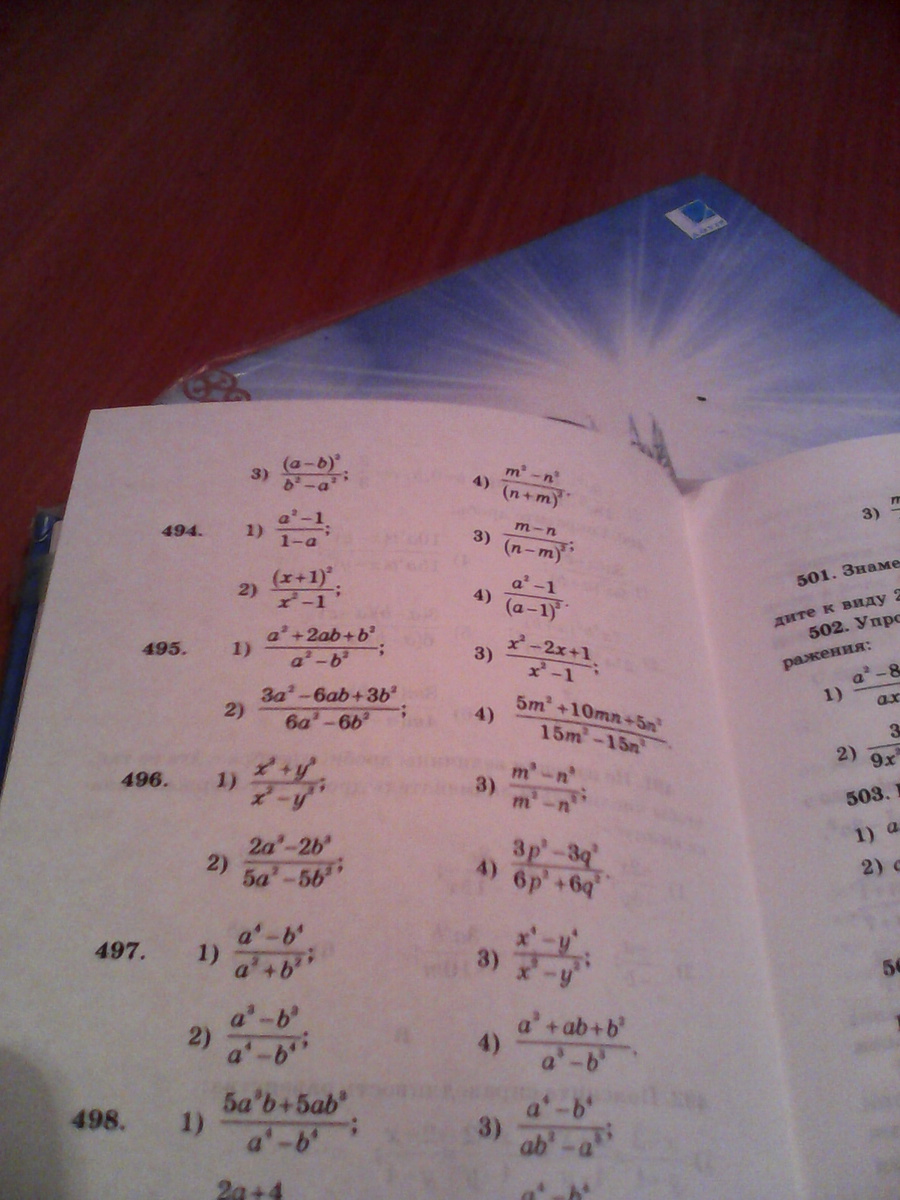 3) (a-b)²/(b²-a²); 4) (m²-n²)/(n+m)².
494. 1) (a²-1)/(1-a); 3) (m-n)/(n-m)²;
2) (x+1)²/(x²-1); 4) (a²-1)/(a-1)².
495. 1) (a²+2ab+b²)/(a²-b²); 3) (x²-2x+1)/(x²-1);
2) (3a²-6ab+3b²)/(6a²-6b²); 4) (5m²+10mn+5n²)/(15m²-15n²).
496. 1) (x³+y³)/(x²-y²); 3) (m³-n³)/(m²-n²);
2) (2a³-2b³)/(5a²-5b²); 4) (3p²-3q²)/(6p³+6q³).
497. 1) (a⁴-b⁴)/(a²+b²); 3) (x⁴-y⁴)/(x²-y²);
2) (a³-b³)/(a⁴-b⁴); 4) (a²+ab+b²)/(a³-b³).
498. 1) (5a³b+5ab³)/(a⁴-b⁴); 3) (a⁴-b⁴)/(ab²-a³);
2a+4 a⁴-b⁴
3)
501. Знаме
дите к виду 2
502. Упро
ражения:
1) a²-8
ax
2) 3
9x²
503.
1) a
2)